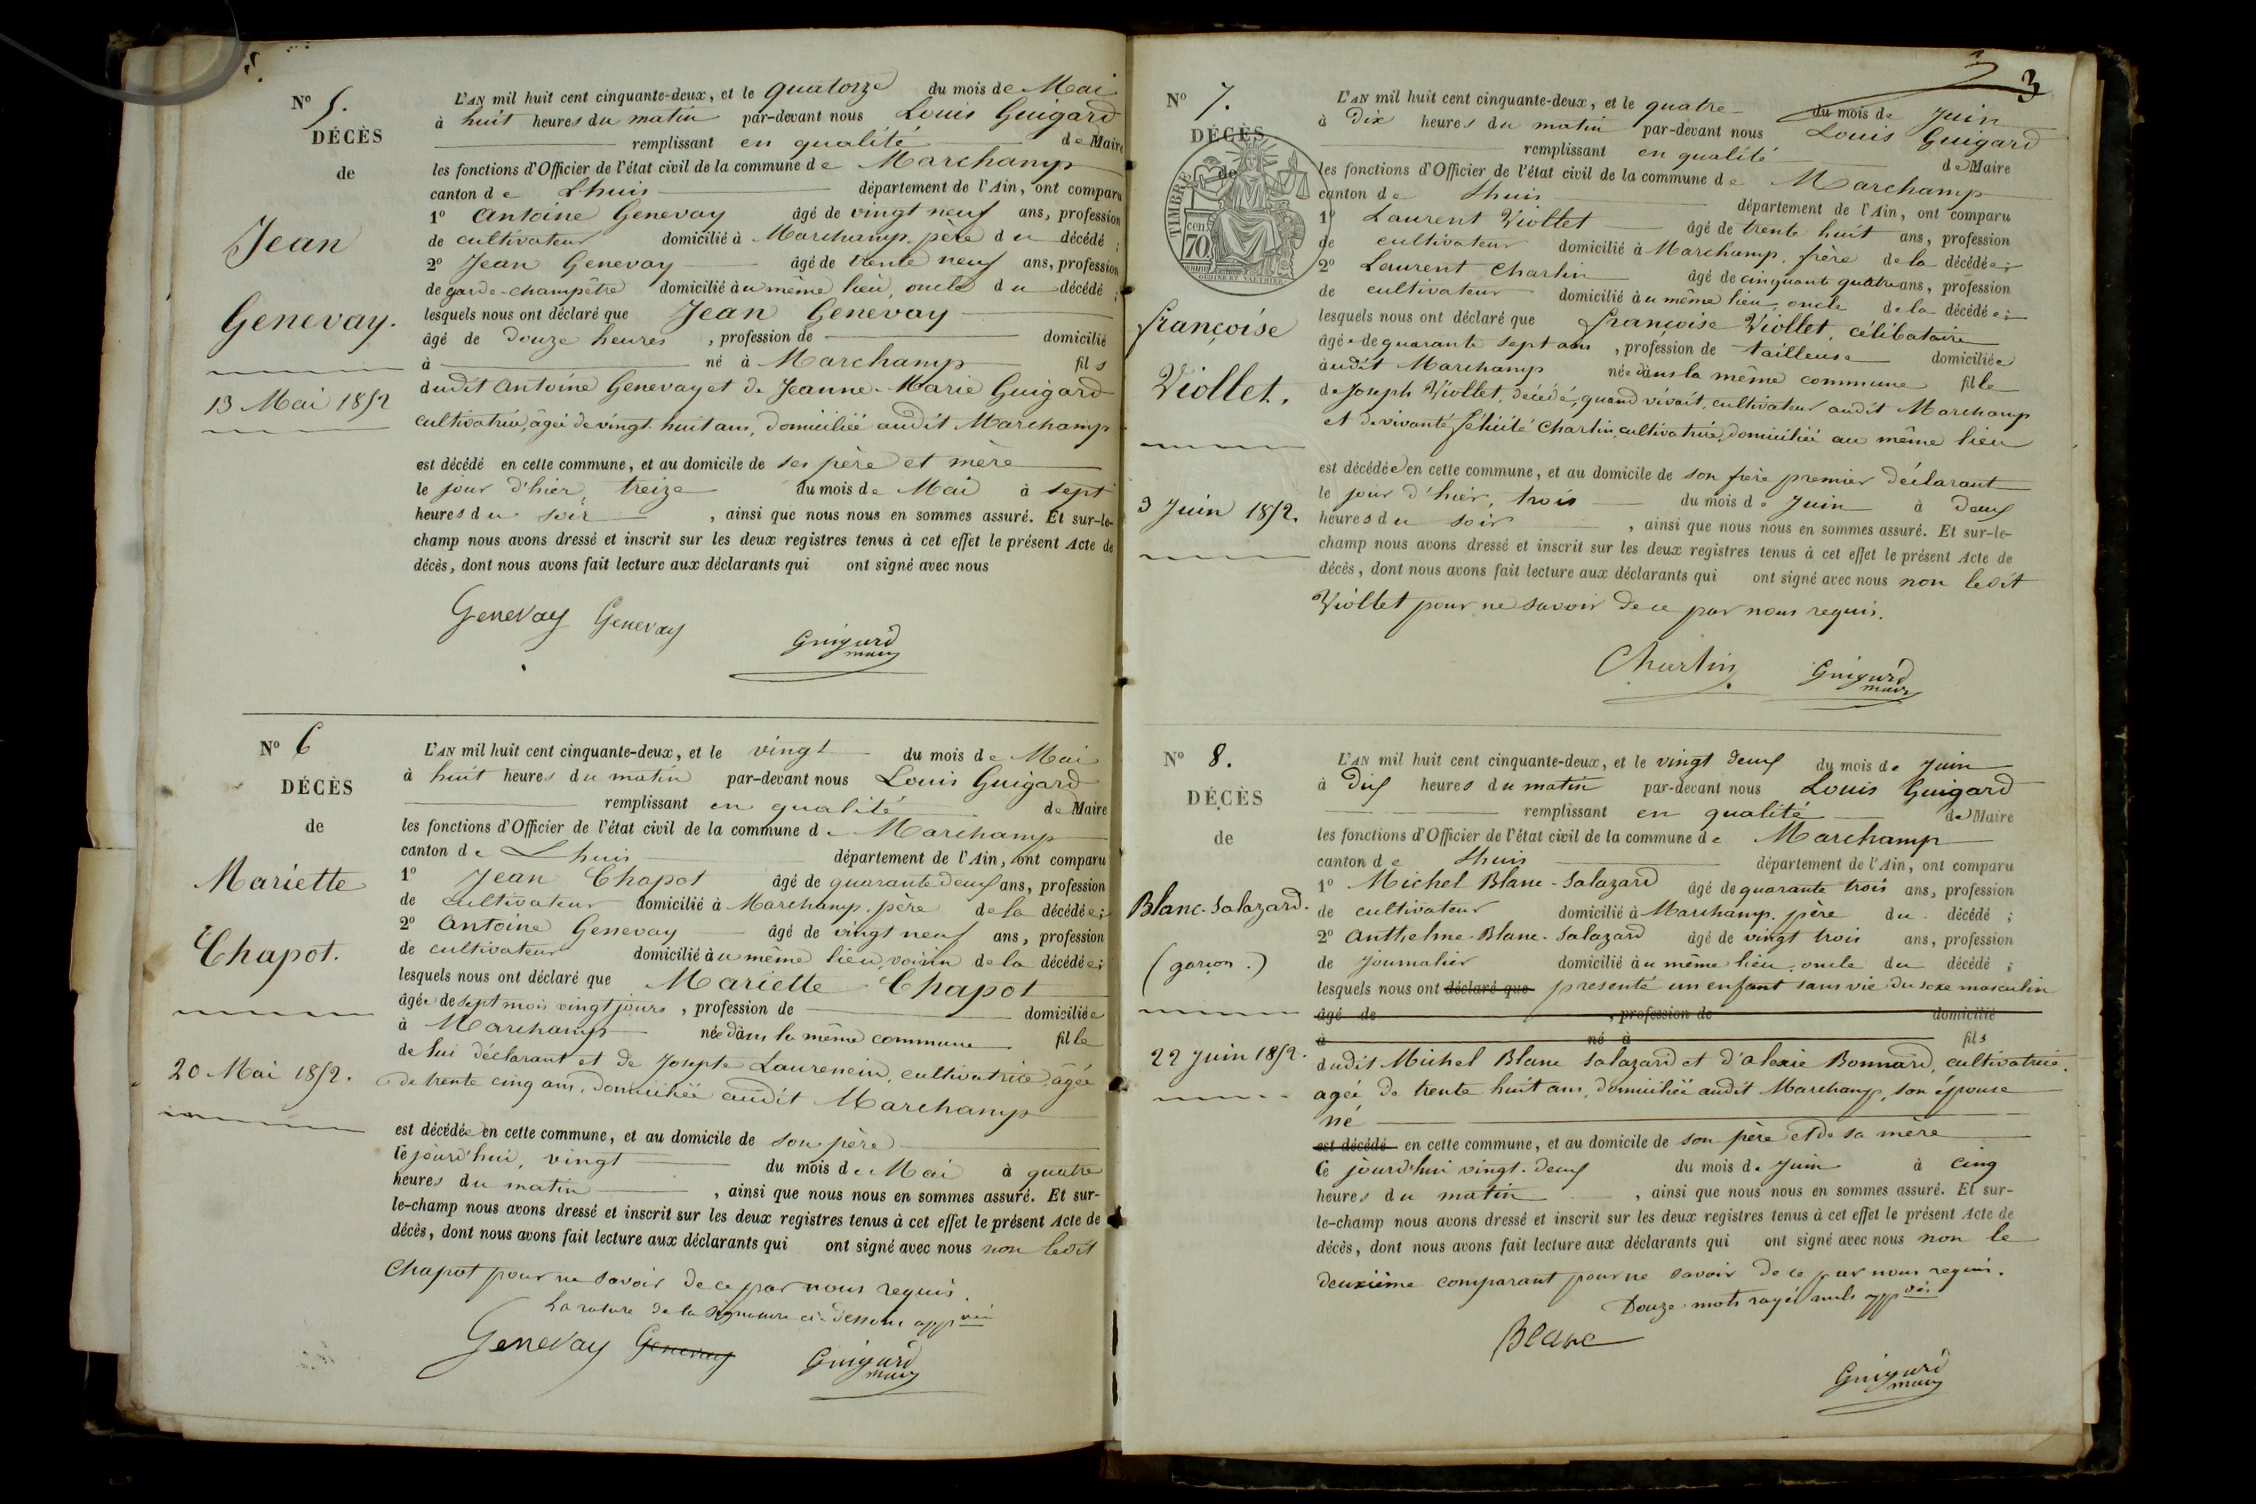 N° 5.
DÉCÈS
de
Jean
Genevay.
13 Mai 1852
L'AN mil huit cent cinquante-deux, et le quatorze du mois de Mai
à huit heures du matin par-devant nous Louis Guigard
remplissant en qualité de Maire
les fonctions d'Officier de l'état civil de la commune de Marchamp
canton de Lhuis département de l'Ain, ont comparu
1° Antoine Genevay âgé de vingt neuf ans, profession
de cultivateur domicilié à Marchamp. père du décédé ;
2° Jean Genevay âgé de trente neuf ans, profession
de garde-champêtre domicilié au même lieu, oncle du décédé ;
lesquels nous ont déclaré que Jean Genevay
âgé de douze heures , profession de domicilié
à né à Marchamp fils
dudit Antoine Genevay et de Jeanne-Marie Guigard
cultivatrice, âgée de vingt-huit ans, domiciliée audit Marchamp
est décédé en cette commune, et au domicile de ses père et mère
le jour d'hier, treize du mois de Mai à sept
heures du soir , ainsi que nous nous en sommes assuré. Et sur-le-
champ nous avons dressé et inscrit sur les deux registres tenus à cet effet le présent Acte de
décès, dont nous avons fait lecture aux déclarants qui ont signé avec nous
Genevay Genevay
Guigard
maire
N° 6
DÉCÈS
de
Mariette
Chapot.
20 Mai 1852.
L'AN mil huit cent cinquante-deux, et le vingt du mois de Mai
à huit heures du matin par-devant nous Louis Guigard
remplissant en qualité de Maire
les fonctions d'Officier de l'état civil de la commune de Marchamp
canton de Lhuis département de l'Ain, ont comparu
1° Jean Chapot âgé de quarante deux ans, profession
de cultivateur domicilié à Marchamp. père de la décédée ;
2° Antoine Genevay âgé de vingt neuf ans, profession
de cultivateur domicilié au même lieu, voisin de la décédée ;
lesquels nous ont déclaré que Mariette Chapot
âgée de sept mois vingt jours , profession de domiciliée
à Marchamp née dans la même commune fille
de lui déclarant et de Josephe Laurencin, cultivatrice, âgée
de trente cinq ans, domiciliée audit Marchamp
est décédée en cette commune, et au domicile de son père
ce jourd'hui, vingt du mois de Mai à quatre
heures du matin , ainsi que nous nous en sommes assuré. Et sur-
le-champ nous avons dressé et inscrit sur les deux registres tenus à cet effet le présent Acte de
décès, dont nous avons fait lecture aux déclarants qui ont signé avec nous non ledit
Chapot pour ne savoir de ce par nous requis.
La rature de la signature ci-dessous appvée
Genevay Genevay
Guigard
maire
3 3
N° 7.
DÉCÈS
de
TIMBRE
70 cen
françoise
Viollet.
3 Juin 1852.
L'AN mil huit cent cinquante-deux, et le quatre du mois de Juin
à dix heures du matin par-devant nous Louis Guigard
remplissant en qualité de Maire
les fonctions d'Officier de l'état civil de la commune de Marchamp
canton de Lhuis département de l'Ain, ont comparu
1° Laurent Viollet âgé de trente huit ans, profession
de cultivateur domicilié à Marchamp. frère de la décédée ;
2° Laurent Charlin âgé de cinquante quatre ans, profession
de cultivateur domicilié au même lieu, oncle de la décédée ;
lesquels nous ont déclaré que françoise Viollet, célibataire
âgée de quarante sept ans , profession de tailleuse domiciliée
audit Marchamp née dans la même commune fille
de Joseph Viollet, décédé, quand vivait, cultivateur audit Marchamp
et de vivante félicité Charlin, cultivatrice, domiciliée au même lieu
est décédée en cette commune, et au domicile de son frère premier déclarant
le jour d'hier, trois du mois de Juin à deux
heures du soir , ainsi que nous nous en sommes assuré. Et sur-le-
champ nous avons dressé et inscrit sur les deux registres tenus à cet effet le présent Acte de
décès, dont nous avons fait lecture aux déclarants qui ont signé avec nous non ledit
Viollet pour ne savoir de ce par nous requis.
Charlin
Guigard
maire
N° 8.
DÉCÈS
de
Blanc-Salazard.
(garçon.)
22 Juin 1852.
L'AN mil huit cent cinquante-deux, et le vingt deux du mois de Juin
à dix heures du matin par-devant nous Louis Guigard
remplissant en qualité de Maire
les fonctions d'Officier de l'état civil de la commune de Marchamp
canton de Lhuis département de l'Ain, ont comparu
1° Michel Blanc-Salazard âgé de quarante trois ans, profession
de cultivateur domicilié à Marchamp. père du décédé ;
2° Anthelme-Blanc-Salazard âgé de vingt trois ans, profession
de journalier domicilié au même lieu, oncle du décédé ;
lesquels nous ont déclaré que présenté un enfant sans vie du sexe masculin
âgé de , profession de domicilié
à né à fils
dudit Michel Blanc Salazard et d'Alexie Bonnard, cultivatrice,
agée de trente huit ans, domiciliée audit Marchamp, son épouse
né
est décédé en cette commune, et au domicile de son père et de sa mère
ce jourd'hui vingt-deux du mois de Juin à cinq
heures du matin , ainsi que nous nous en sommes assuré. Et sur-
le-champ nous avons dressé et inscrit sur les deux registres tenus à cet effet le présent Acte de
décès, dont nous avons fait lecture aux déclarants qui ont signé avec nous non le
deuxième comparant pour ne savoir de ce par nous requis.
Douze mots rayés nuls appvés
Blanc
Guigard
maire